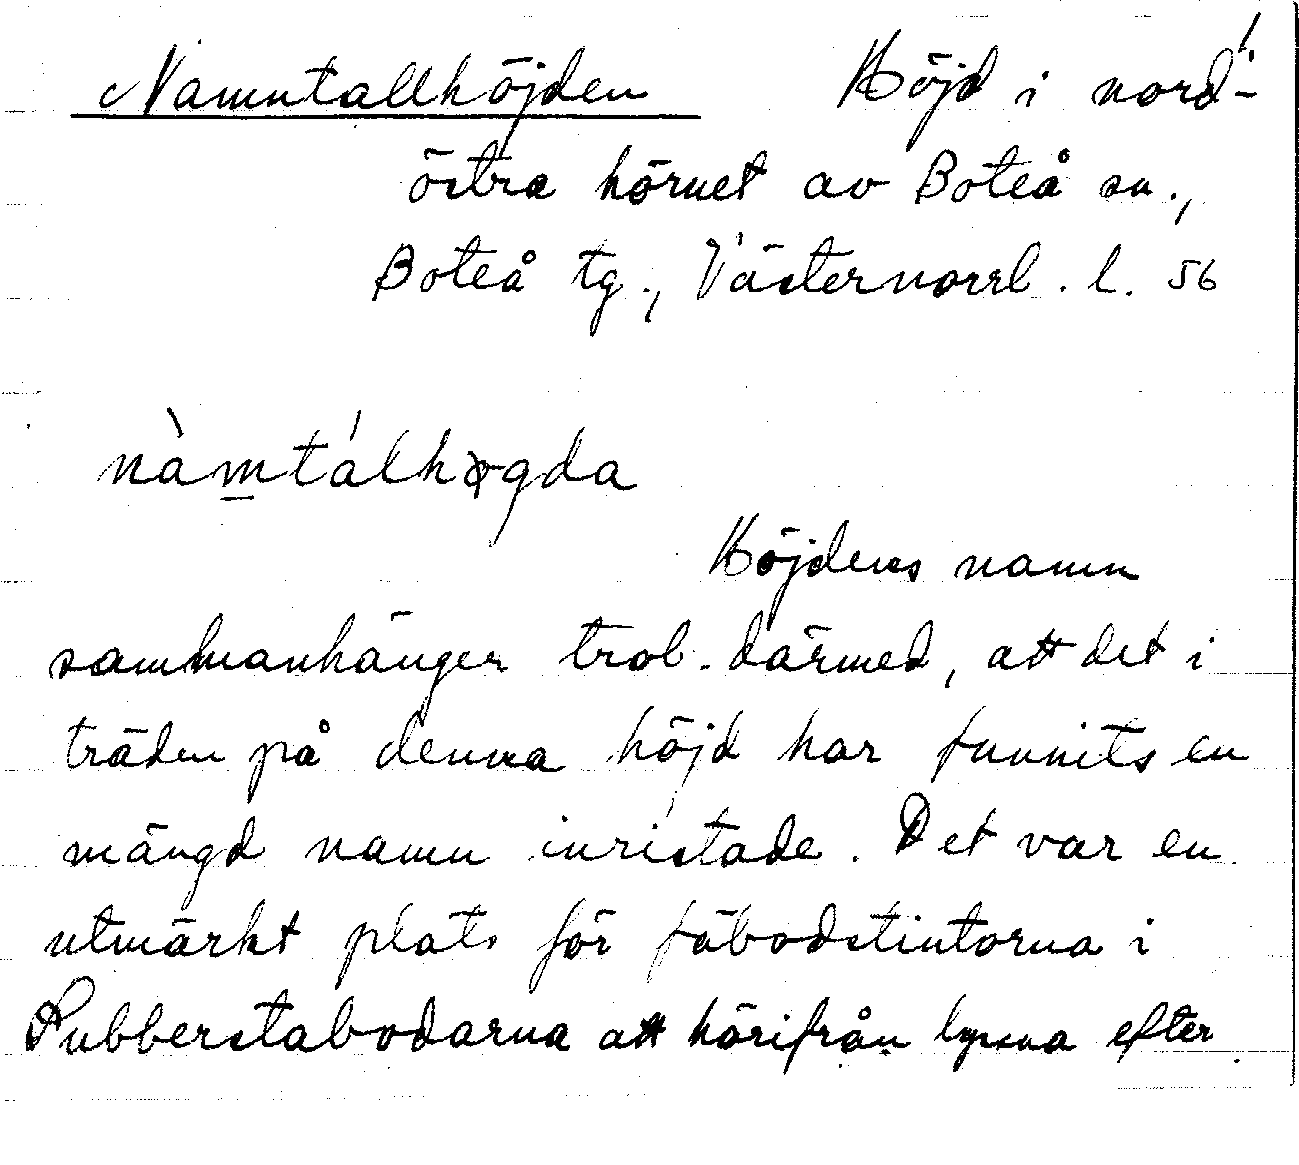 Namntallhöjden Höjd i nord-
östra hörnet av Boteå sn.,
Boteå tg., Västernorrl. l. 56
nàmtálhøgda
Höjdens namn
sammanhänger trol. därmed, att det i
träden på denna höjd har funnits en
mängd namn inristade. Det var en
utmärkt plats för fäbodstintorna i
Subberstabodarna att härifrån lyssna efter